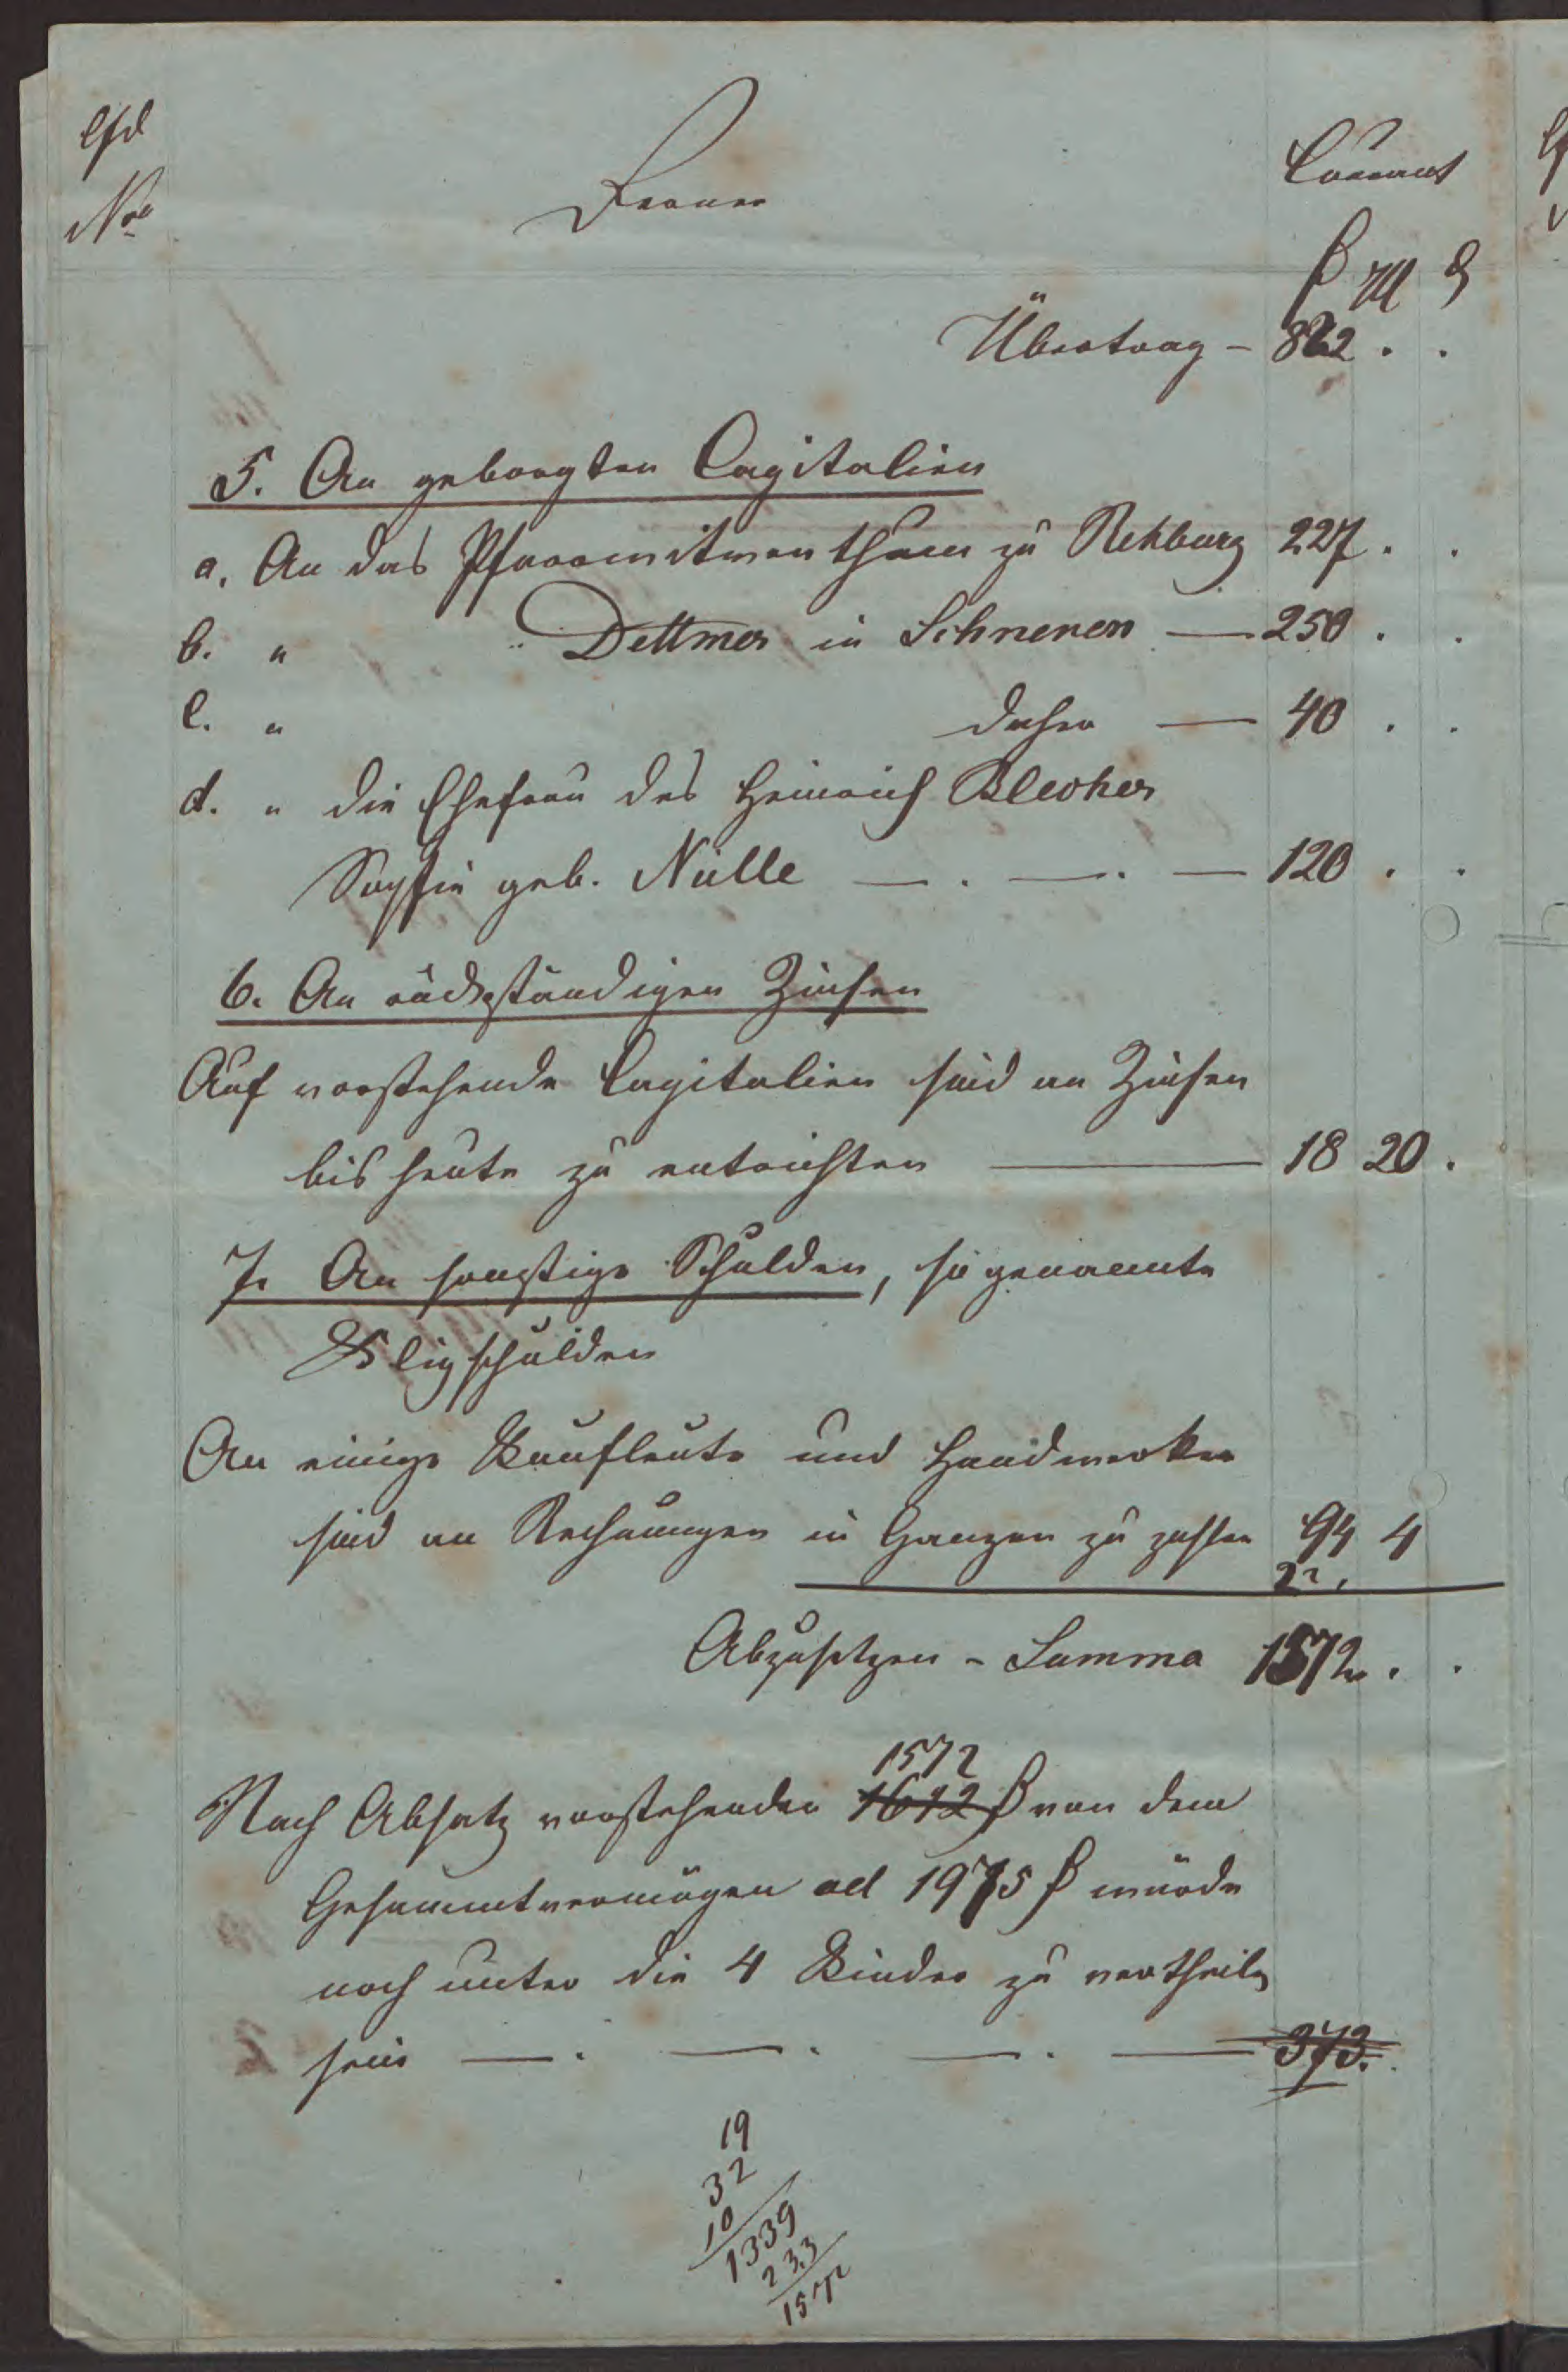 lfd
Nro
Ferner
Courant
ƒ ggl ₰
Übertrag - 822 . .
5. An geborgten Capitalien
a, An das Pfarrwitwenthum zu Rehburg 227 . .
b. " Dettmer in Schneren — 250 . .
c. " daher — 40 . .
d. " die Ehefrau des Heinrich Blecker
Sophie geb. Nülle — . — . — 120 . .
6. An rückständigen Zinsen
Auf vorstehende Capitalien sind an Zinsen
bis heute zu entrichten — 18 20 .
7. An sonstige Schulden, sogenannte
Klippschulden
An einige Kaufleute und Handwerker
sind an Rechnungen in Ganzen zu zahlen 94 4
Abzusetzen - Summa 1572 . .
1572
Nach Absatz vorstehender 1612 ƒ von dem
Gesammtvermögen ad 1975 ƒ würde
noch unter die 4 Kinder zu vertheilen
sein — . — . — . — 373.
19
32
10
1339
233
1572